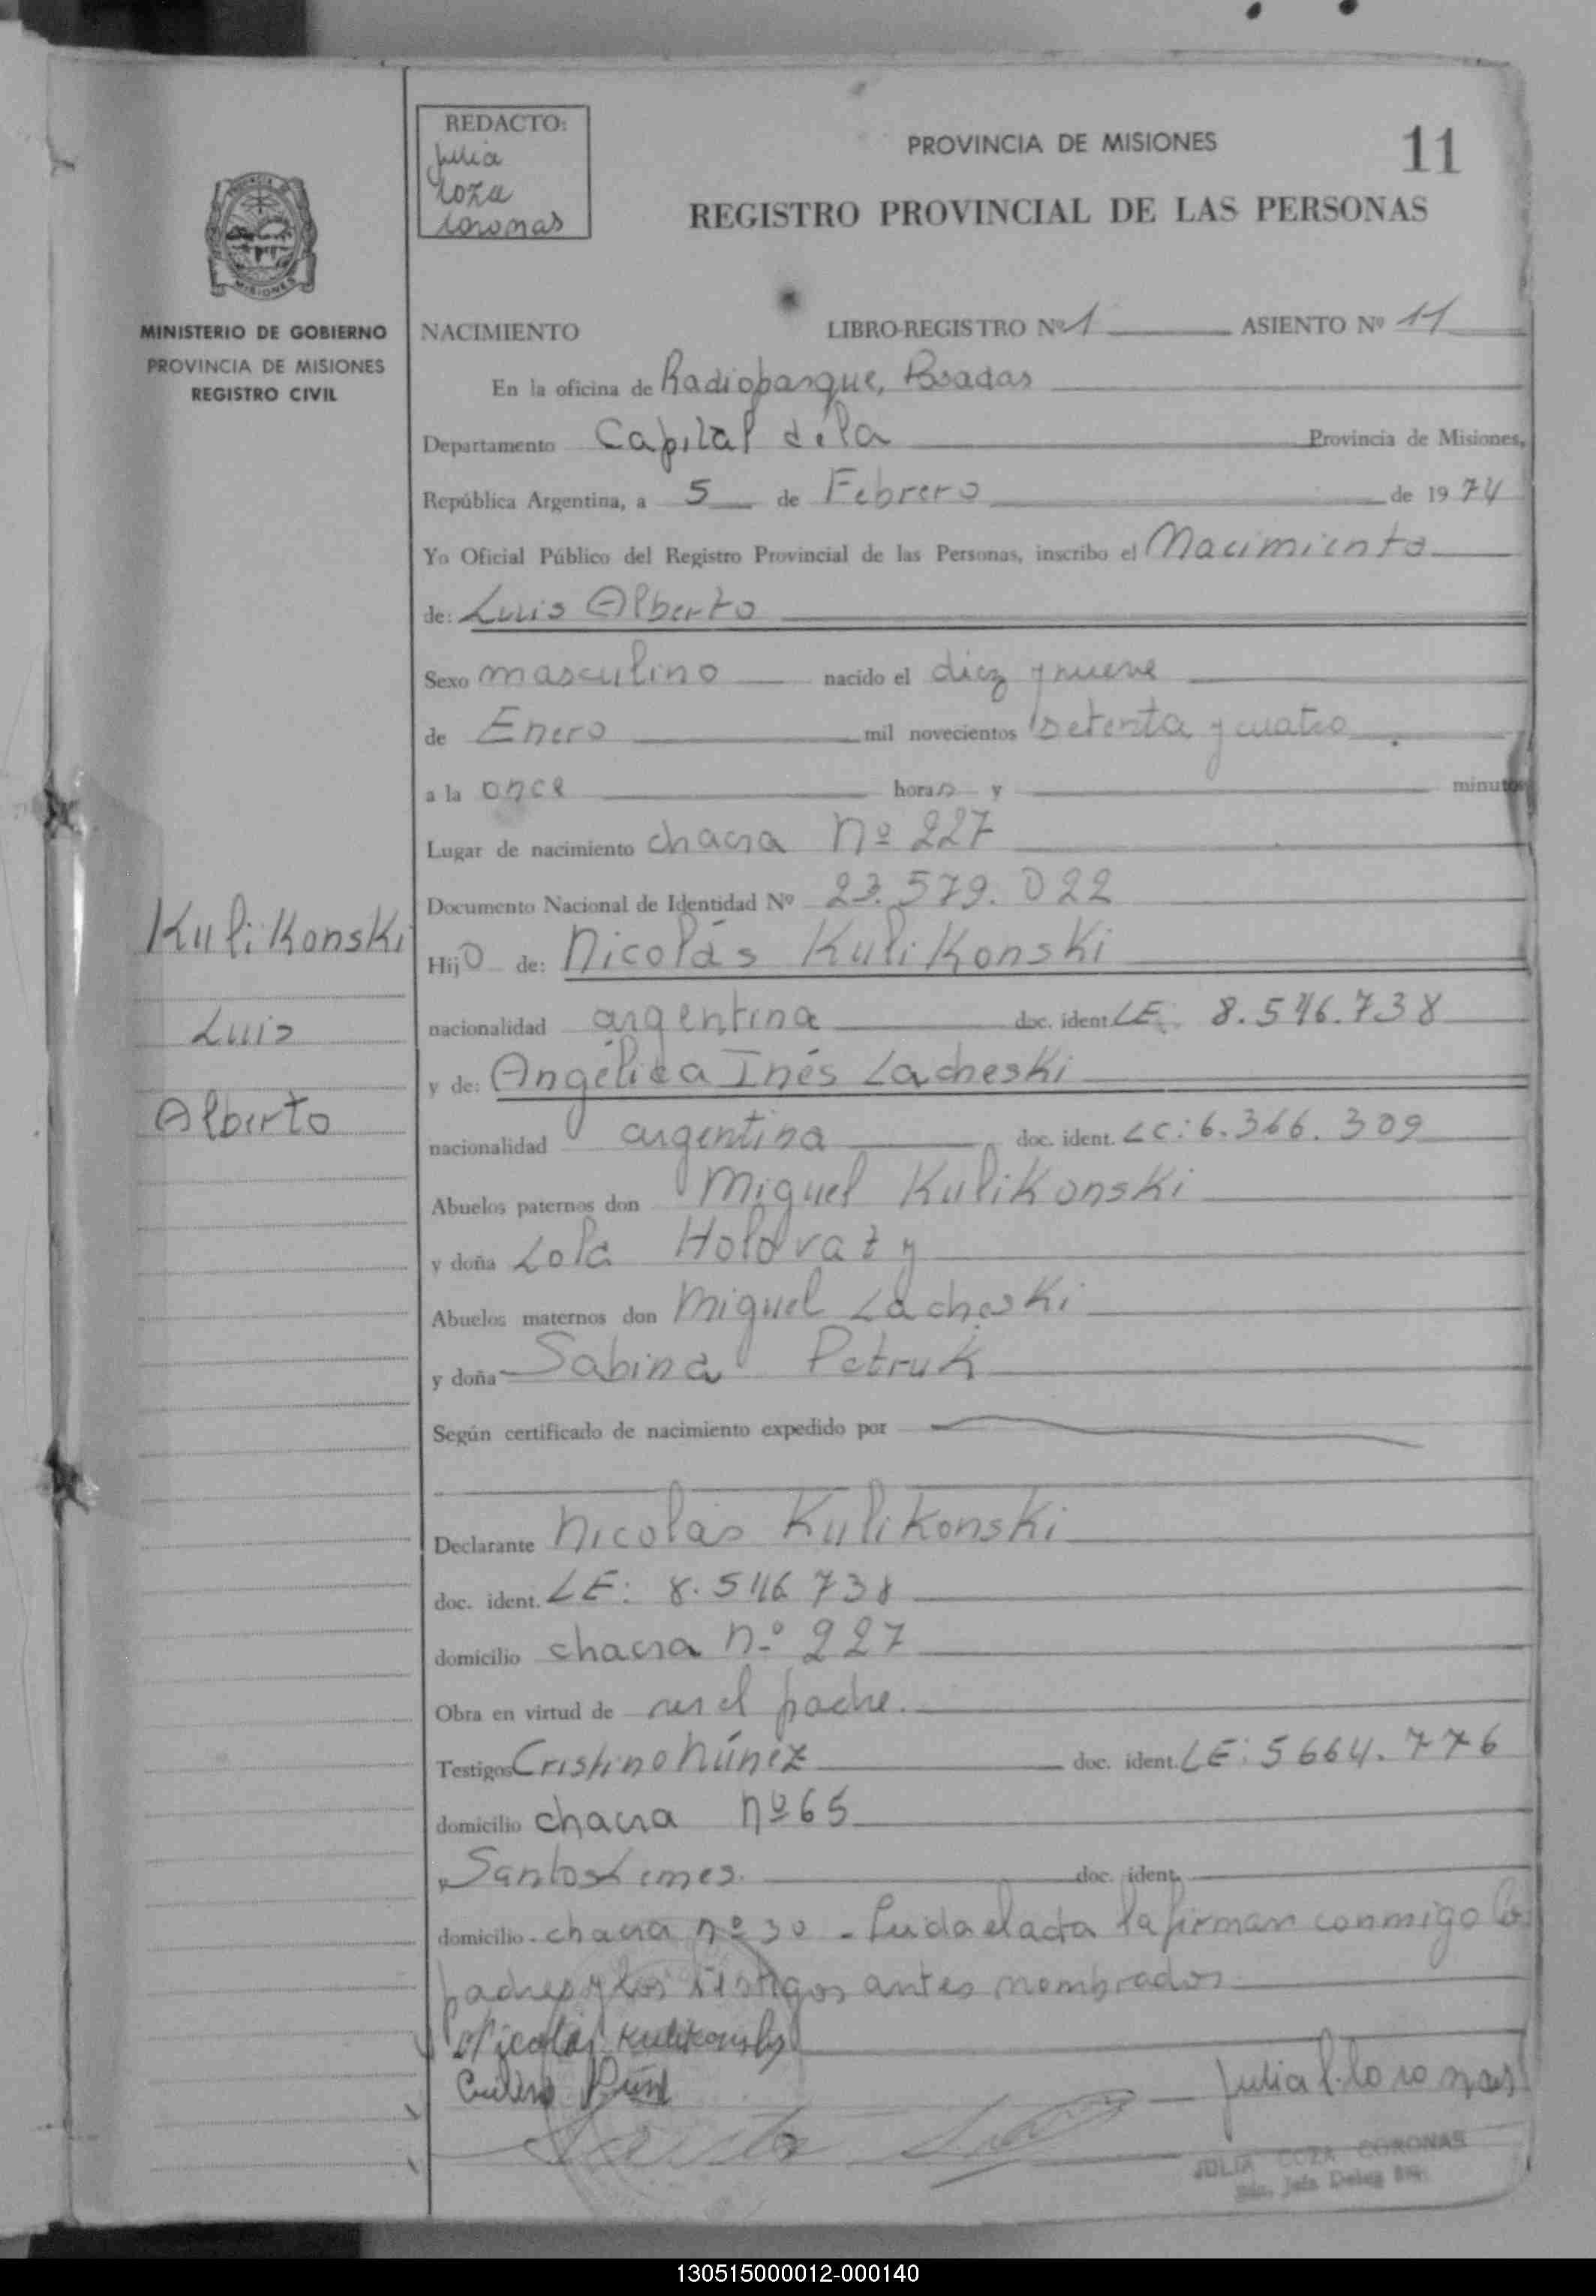 REDACTO:
Julia
Coza
Coronas
PROVINCIA DE MISIONES
11
REGISTRO PROVINCIAL DE LAS PERSONAS
PROVINCIA DE
MISIONES
MINISTERIO DE GOBIERNO
PROVINCIA DE MISIONES
REGISTRO CIVIL
NACIMIENTO LIBRO-REGISTRO Nº 1 ASIENTO Nº 11
En la oficina de Radioparque, Posadas
Departamento Capital de la Provincia de Misiones,
República Argentina, a 5 de Febrero de 1974
Yo Oficial Público del Registro Provincial de las Personas, inscribo el Nacimiento
de: Luis Alberto
Sexo masculino nacido el diez y nueve
de Enero mil novecientos setenta y cuatro
a la once horas y minutos
Lugar de nacimiento chacra Nº 227
Documento Nacional de Identidad Nº 23.579.022
Kulikonski
Luis
Alberto
Hijo de: Nicolás Kulikonski
nacionalidad argentina doc. ident. LE: 8.546.738
y de: Angélica Inés Lacheski
nacionalidad argentina doc. ident. LC: 6.366.309
Abuelos paternos don Miguel Kulikonski
y doña Lola Holovaty
Abuelos maternos don Miguel Lacheski
y doña Sabina Petruk
Según certificado de nacimiento expedido por
Declarante Nicolás Kulikonski
doc. ident. LE: 8.546.738
domicilio chacra n.º 227
Obra en virtud de ser el padre.
Testigos Cristino Núñez doc. ident. LE: 5664.776
domicilio chacra nº 65
Santos Lemes. doc. ident.
domicilio chacra nº 30 - Leida el acta la firman conmigo los
padres y los testigos antes nombrados
Nicolás Kulikonski
Julia C. Coronas
JULIA COZA CORONAS
130515000012-000140